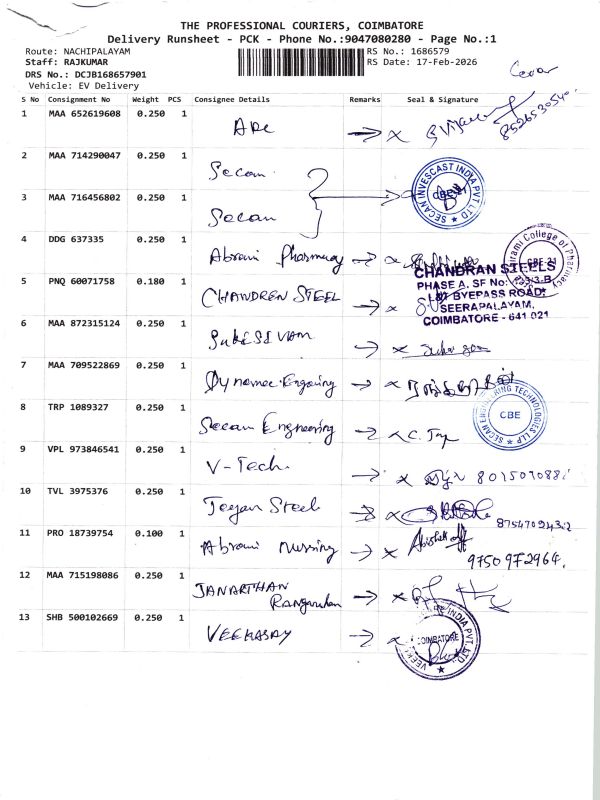 THE PROFESSIONAL COURIERS, COIMBATORE
Delivery Runsheet - PCK - Phone No.:9047080280 - Page No.:1
Route: NACHIPALAYAM
RS No.: 1686579
Staff: RAJKUMAR
RS Date: 17-Feb-2026
DRS No.: DCJB168657901
Vehicle: EV Delivery
S No Consignment No Weight PCS Consignee Details Remarks Seal & Signature
1 MAA 652619608 0.250 1
8526530540
2 MAA 714290047 0.250 1 Secan
SECAN INVESCAST INDIA PVT LTD
3 MAA 716456802 0.250 1 Secan
4 DDG 637335 0.250 1 Abrami Pharmacy
College of Pharmacy
5 PNQ 60071758 0.180 1 CHANDREN STEEL
CHANDRAN STEELS
PHASE A, SF No:
BYEPASS ROAD,
SEERAPALAYAM,
COIMBATORE - 641 021
6 MAA 872315124 0.250 1
7 MAA 709522869 0.250 1
8 TRP 1089327 0.250 1 Secan Engineering
SECAN ENGINEERING TECHNOLOGIES LLP
CBE
9 VPL 973846541 0.250 1 V-Tech
10 TVL 3975376 0.250 1 Jeyan Steel
11 PRO 18739754 0.100 1 Abrami Nursing
9750972964.
12 MAA 715198086 0.250 1 JANARTHAN
13 SHB 500102669 0.250 1 VEEKASAY
INDIA PVT. LTD.
COIMBATORE